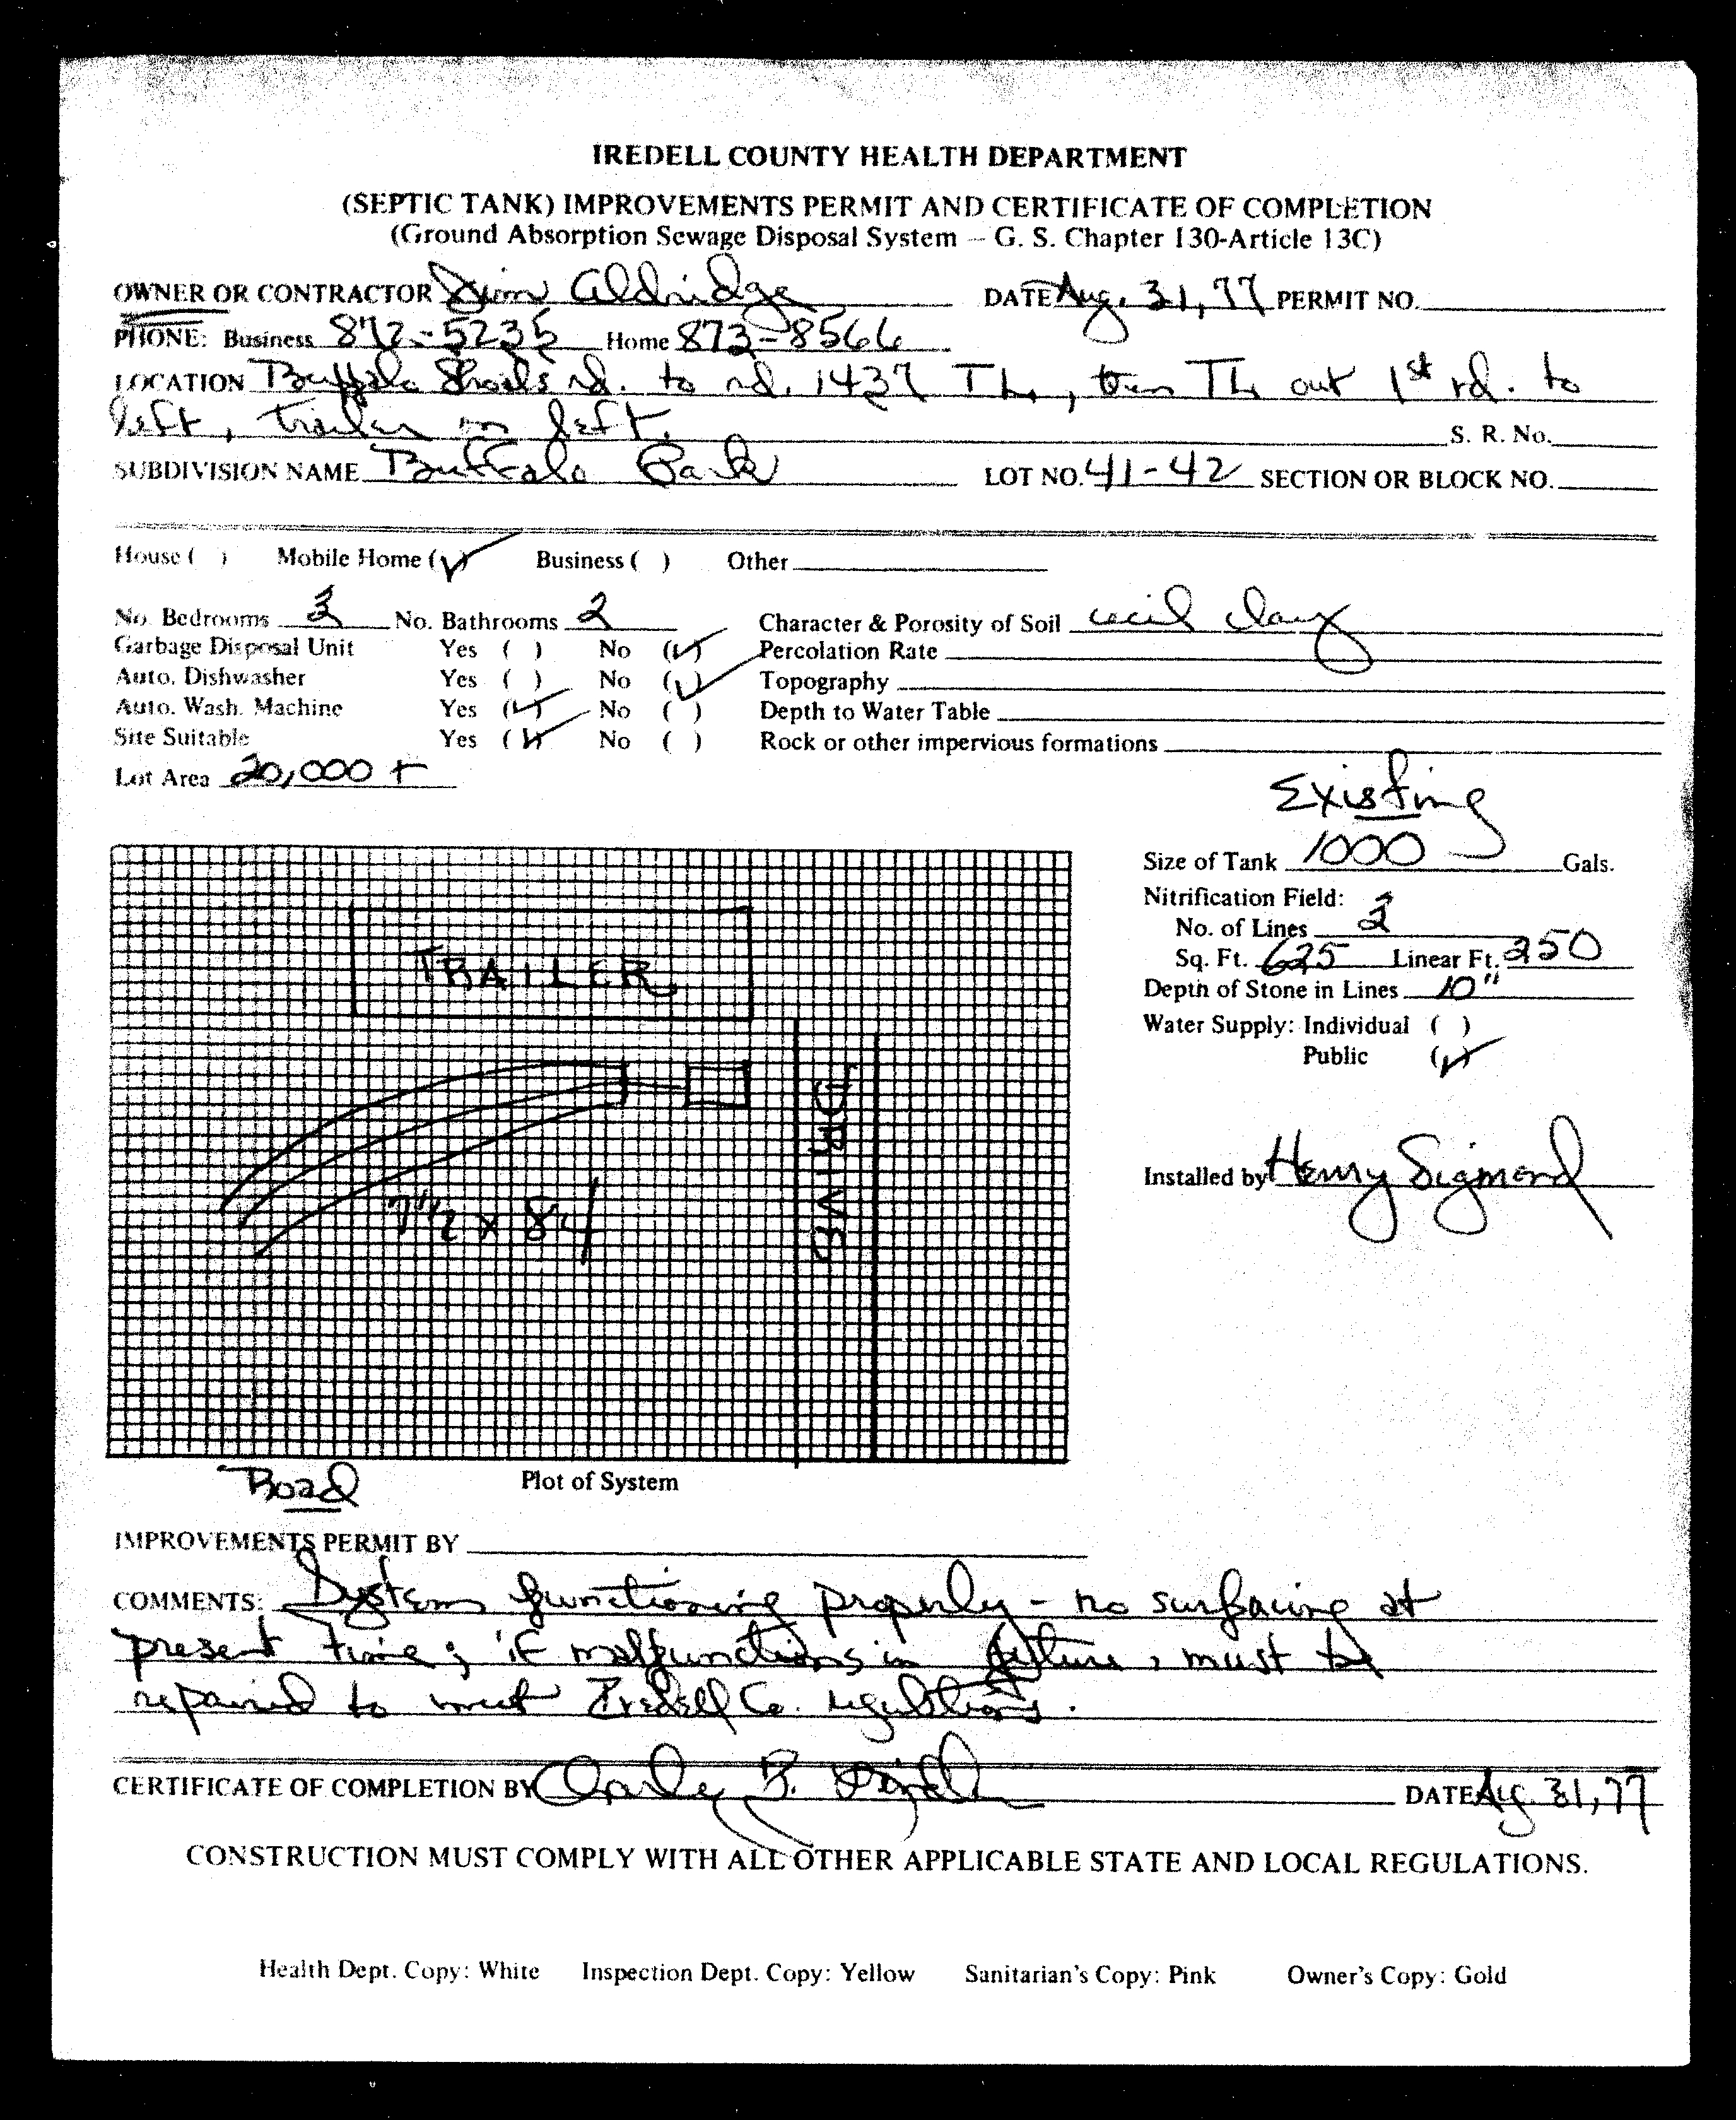 IREDELL COUNTY HEALTH DEPARTMENT
(SEPTIC TANK) IMPROVEMENTS PERMIT AND CERTIFICATE OF COMPLETION
(Ground Absorption Sewage Disposal System – G. S. Chapter 130-Article 13C)
OWNER OR CONTRACTOR Jim Aldridge DATE Aug. 31, 77 PERMIT NO.
PHONE: Business 872-5235 Home 873-8566
LOCATION Buffalo Shoals rd. to rd. 1437 TL, turn TL out 1st rd. to
left, trailer on left. S. R. No.
SUBDIVISION NAME Buffalo Park LOT NO. 41-42 SECTION OR BLOCK NO.
House ( ) Mobile Home (✓) Business ( ) Other
No. Bedrooms 3 No. Bathrooms 2 Character & Porosity of Soil cecil clay
Garbage Disposal Unit Yes ( ) No (✓) Percolation Rate
Auto. Dishwasher Yes ( ) No (✓) Topography
Auto. Wash. Machine Yes (✓) No ( ) Depth to Water Table
Site Suitable Yes (✓) No ( ) Rock or other impervious formations
Lot Area 20,000 +
Existing
Size of Tank 1000 Gals.
Nitrification Field:
No. of Lines 3
Sq. Ft. 625 Linear Ft. 250
Depth of Stone in Lines 10"
Water Supply: Individual ( )
Public (✓)
Installed by Henry Sigmond
TRAILER
DRIVE
7 1/2 x 84
Road
Plot of System
IMPROVEMENTS PERMIT BY
COMMENTS: System functioning properly - no surfacing at
present time; if malfunctions in future, must be
repaired to meet Iredell Co. regulations.
CERTIFICATE OF COMPLETION BY B. DATE Aug. 31, 77
CONSTRUCTION MUST COMPLY WITH ALL OTHER APPLICABLE STATE AND LOCAL REGULATIONS.
Health Dept. Copy: White Inspection Dept. Copy: Yellow Sanitarian's Copy: Pink Owner's Copy: Gold